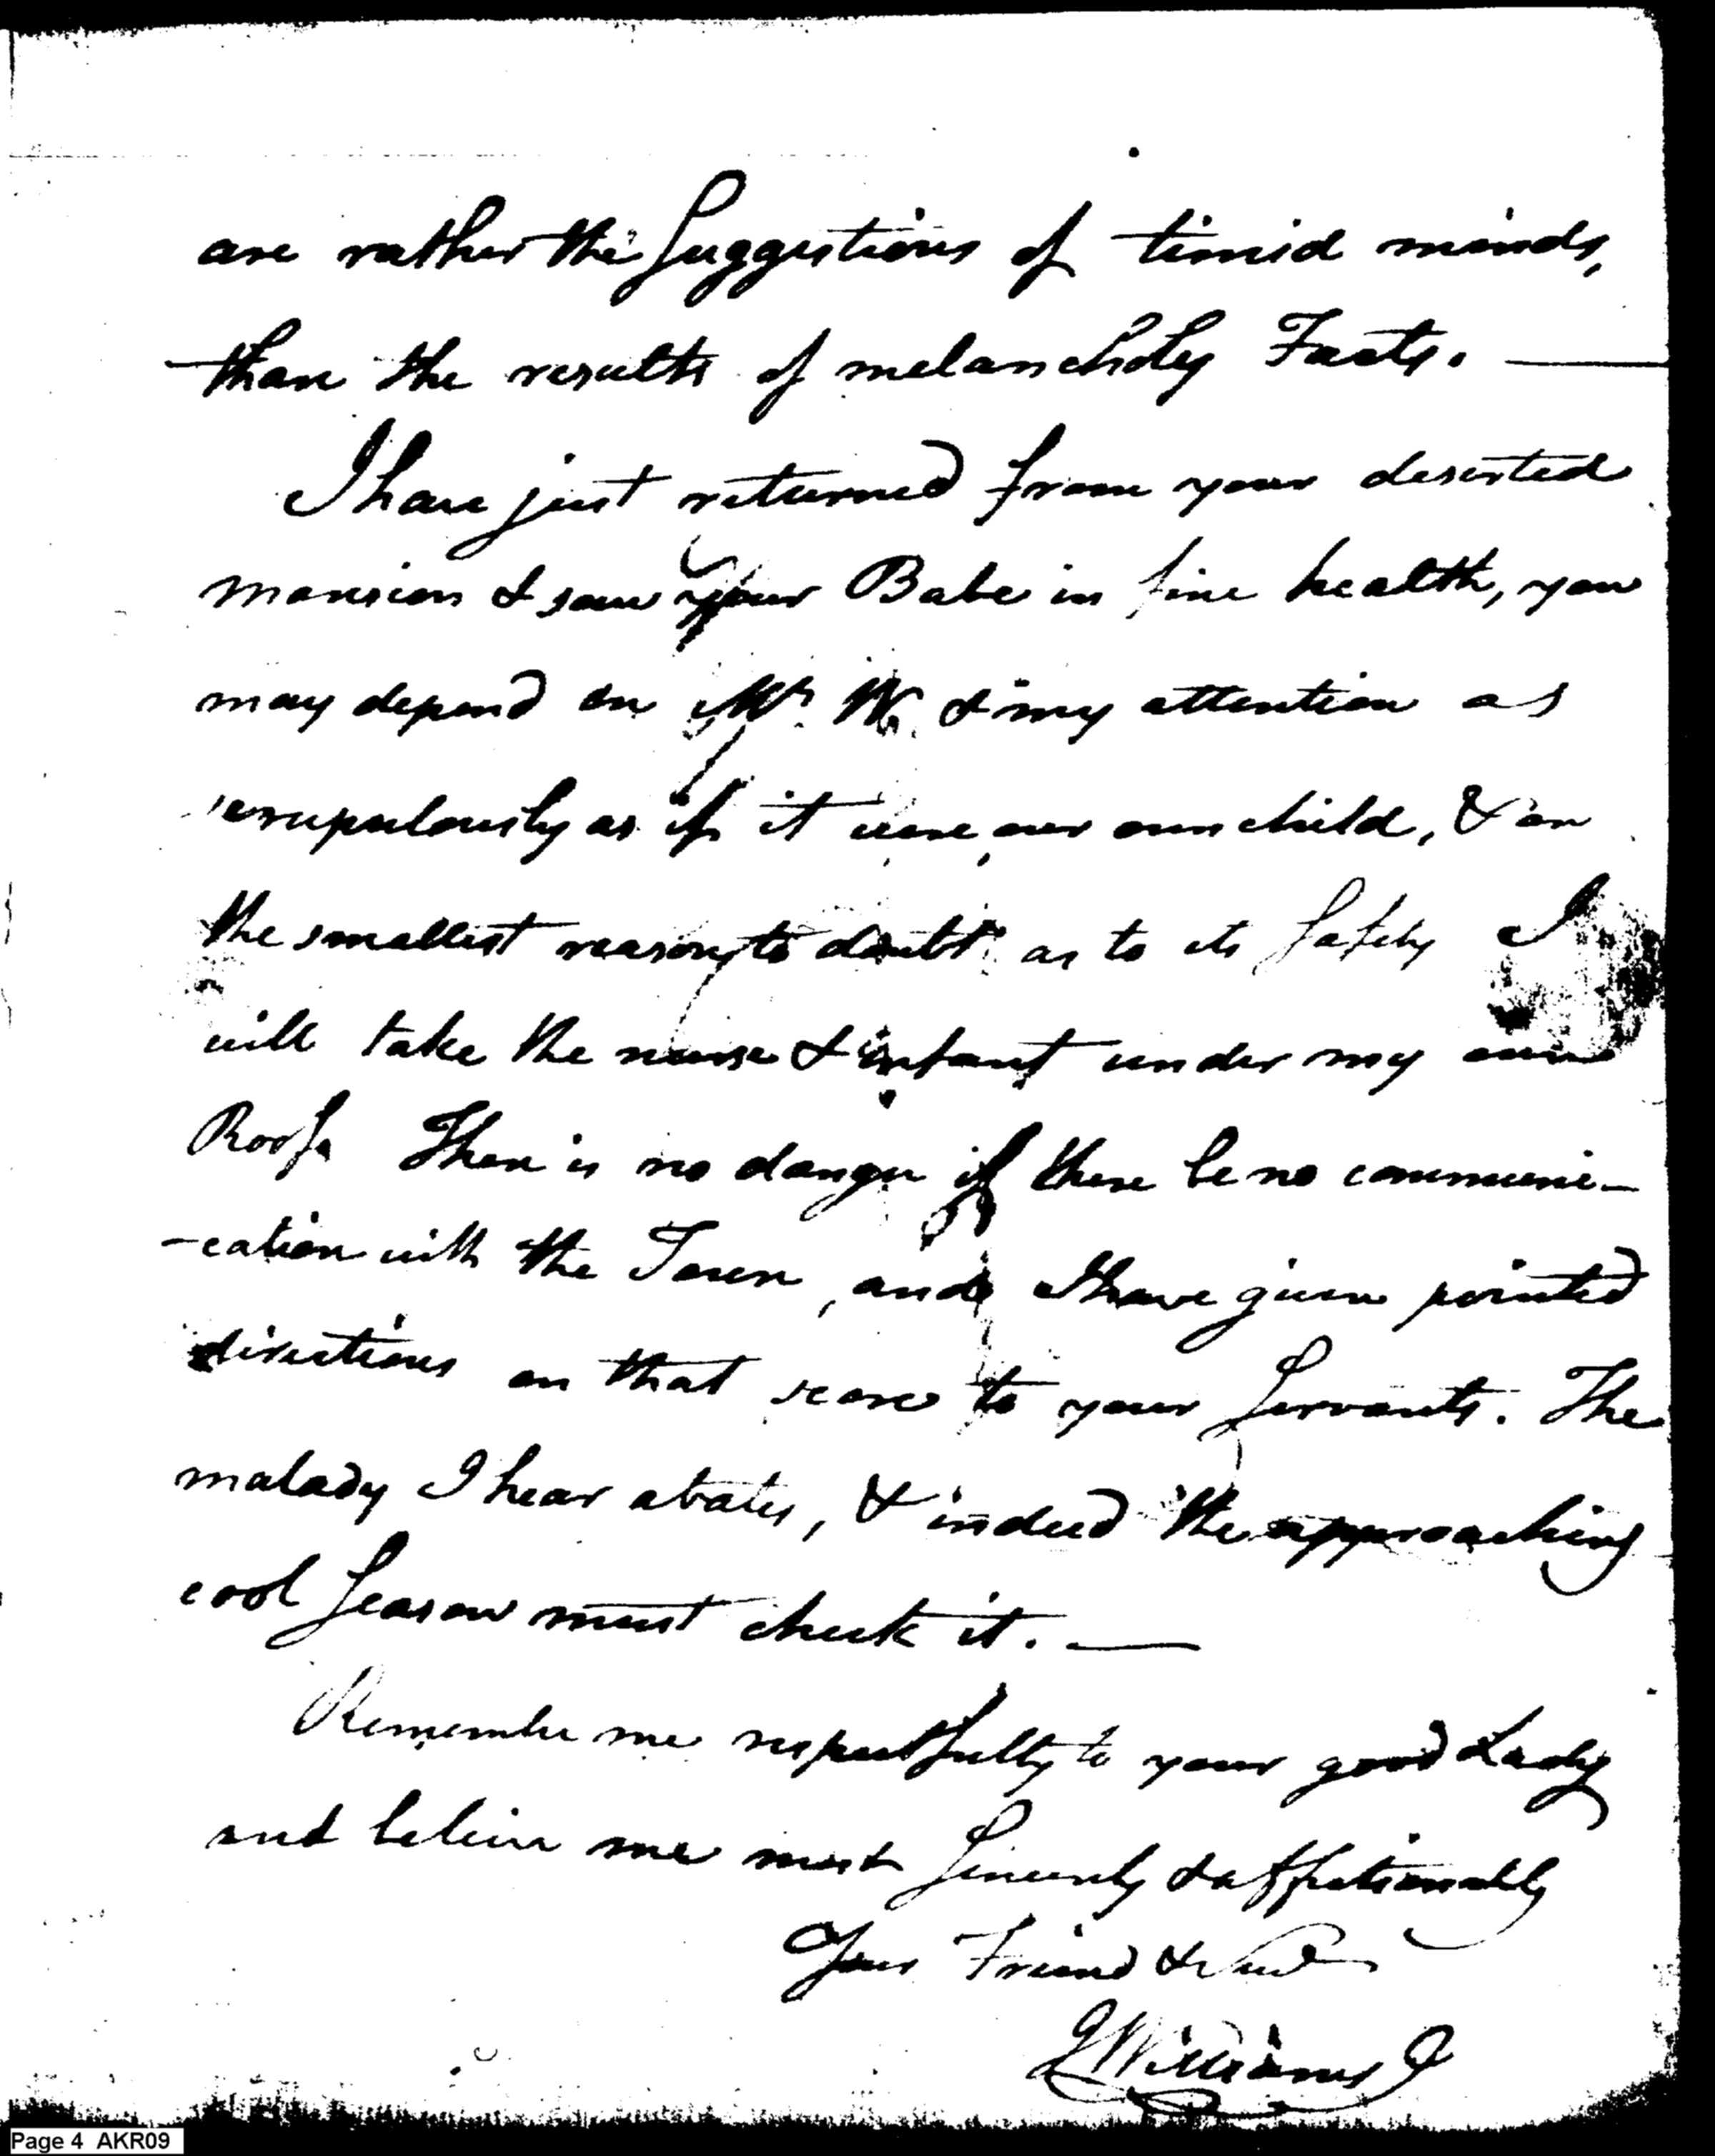 are rather the Suggestions of timid minds,
than the results of melancholy Facts. —
I have just returned from your deserted
mansion & saw your Babe in fine health, you
may depend on Mrs. W. & my attention as
scrupulously as if it were our own child, & on
the smallest reason to doubt as to its Safety I
will take the nurse & infant under my own
Roof. There is no danger if there be no communi-
-cation with the Town, and I have given pointed
directions on that score to your Servants. The
malady I hear abates, & indeed the approaching
cool Season must check it. —
Remember me respectfully to your good Lady
and believe me most Sincerely & affectionately
Your Friend &
Williams
Page 4 AKR09